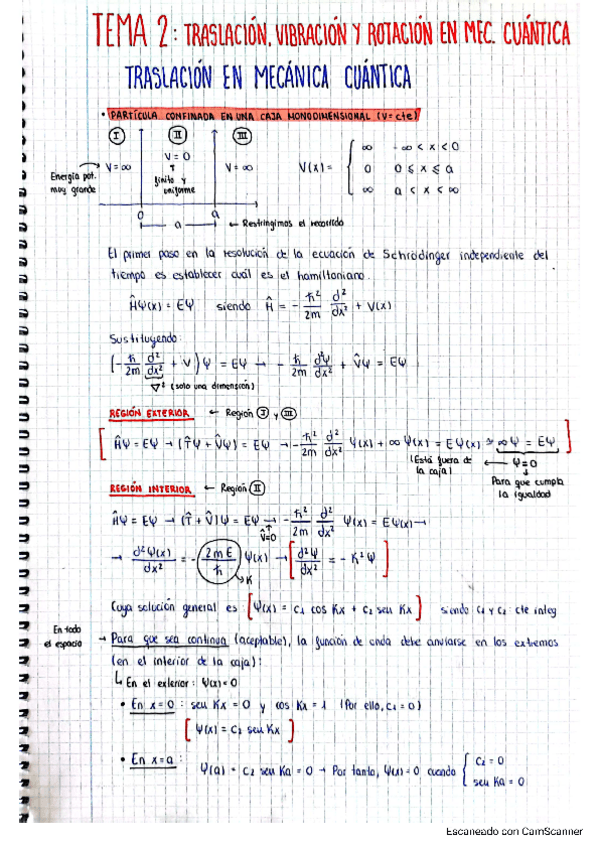 TEMA 2: TRASLACIÓN, VIBRACIÓN Y ROTACIÓN EN MEC. CUÁNTICA
TRASLACIÓN EN MECÁNICA CUÁNTICA
• PARTÍCULA CONFINADA EN UNA CAJA MONODIMENSIONAL (V=cte)
I II III
Energía pot. muy grande → V=∞
V=0
↑
finito y uniforme
V=∞
V(x) = { ∞ -∞ < x < 0
0 0 ≤ x ≤ a
∞ a < x < ∞
0 a
a ← Restringimos el recorrido
El primer paso en la resolución de la ecuación de Schrödinger independiente del
tiempo es establecer cuál es el hamiltoniano.
ĤΨ(x) = EΨ siendo Ĥ = - ħ²/2m d²/dx² + V(x)
Sustituyendo:
(- ħ/2m d²/dx² + V)Ψ = EΨ → - ħ/2m d²Ψ/dx² + V̂Ψ = EΨ
∇² (solo una dimensión)
REGIÓN EXTERIOR ← Región I y III
[ĤΨ = EΨ → (T̂Ψ + V̂Ψ) = EΨ → - ħ²/2m d²/dx² Ψ(x) + ∞Ψ(x) = EΨ(x) ≃ ∞Ψ = EΨ]
(Está fuera de la caja) ← Ψ=0
↓
Para que cumpla la igualdad
REGIÓN INTERIOR ← Región II
ĤΨ = EΨ → (T̂ + V̂)Ψ = EΨ → - ħ²/2m d²/dx² Ψ(x) = EΨ(x) →
V̂=0
→ d²Ψ(x)/dx² = - (2mE/ħ) Ψ(x) → [d²Ψ/dx² = - K²Ψ]
K
Cuya solución general es [Ψ(x) = C₁ cos Kx + C₂ sen Kx] siendo C₁ y C₂ cte integ
En todo el espacio
→ Para que sea continua (aceptable), la función de onda debe anularse en los extremos
(en el interior de la caja):
↳ En el exterior: Ψ(x)=0
• En x=0: sen Kx = 0 y cos Kx = 1 (Por ello, C₁ = 0)
[Ψ(x) = C₂ sen Kx]
• En x=a:
Ψ(a) = C₂ sen Ka = 0 → Por tanto, Ψ(x)=0 cuando { C₂ = 0
sen Ka = 0
Escaneado con CamScanner